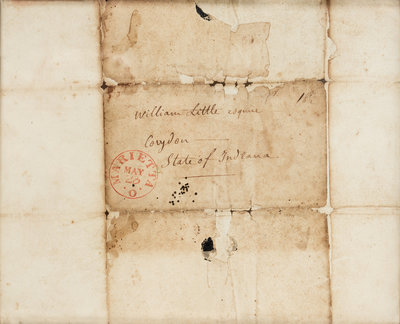 William Little esquire
Corydon
State of Indeana
MARIETTA
MAY
O.